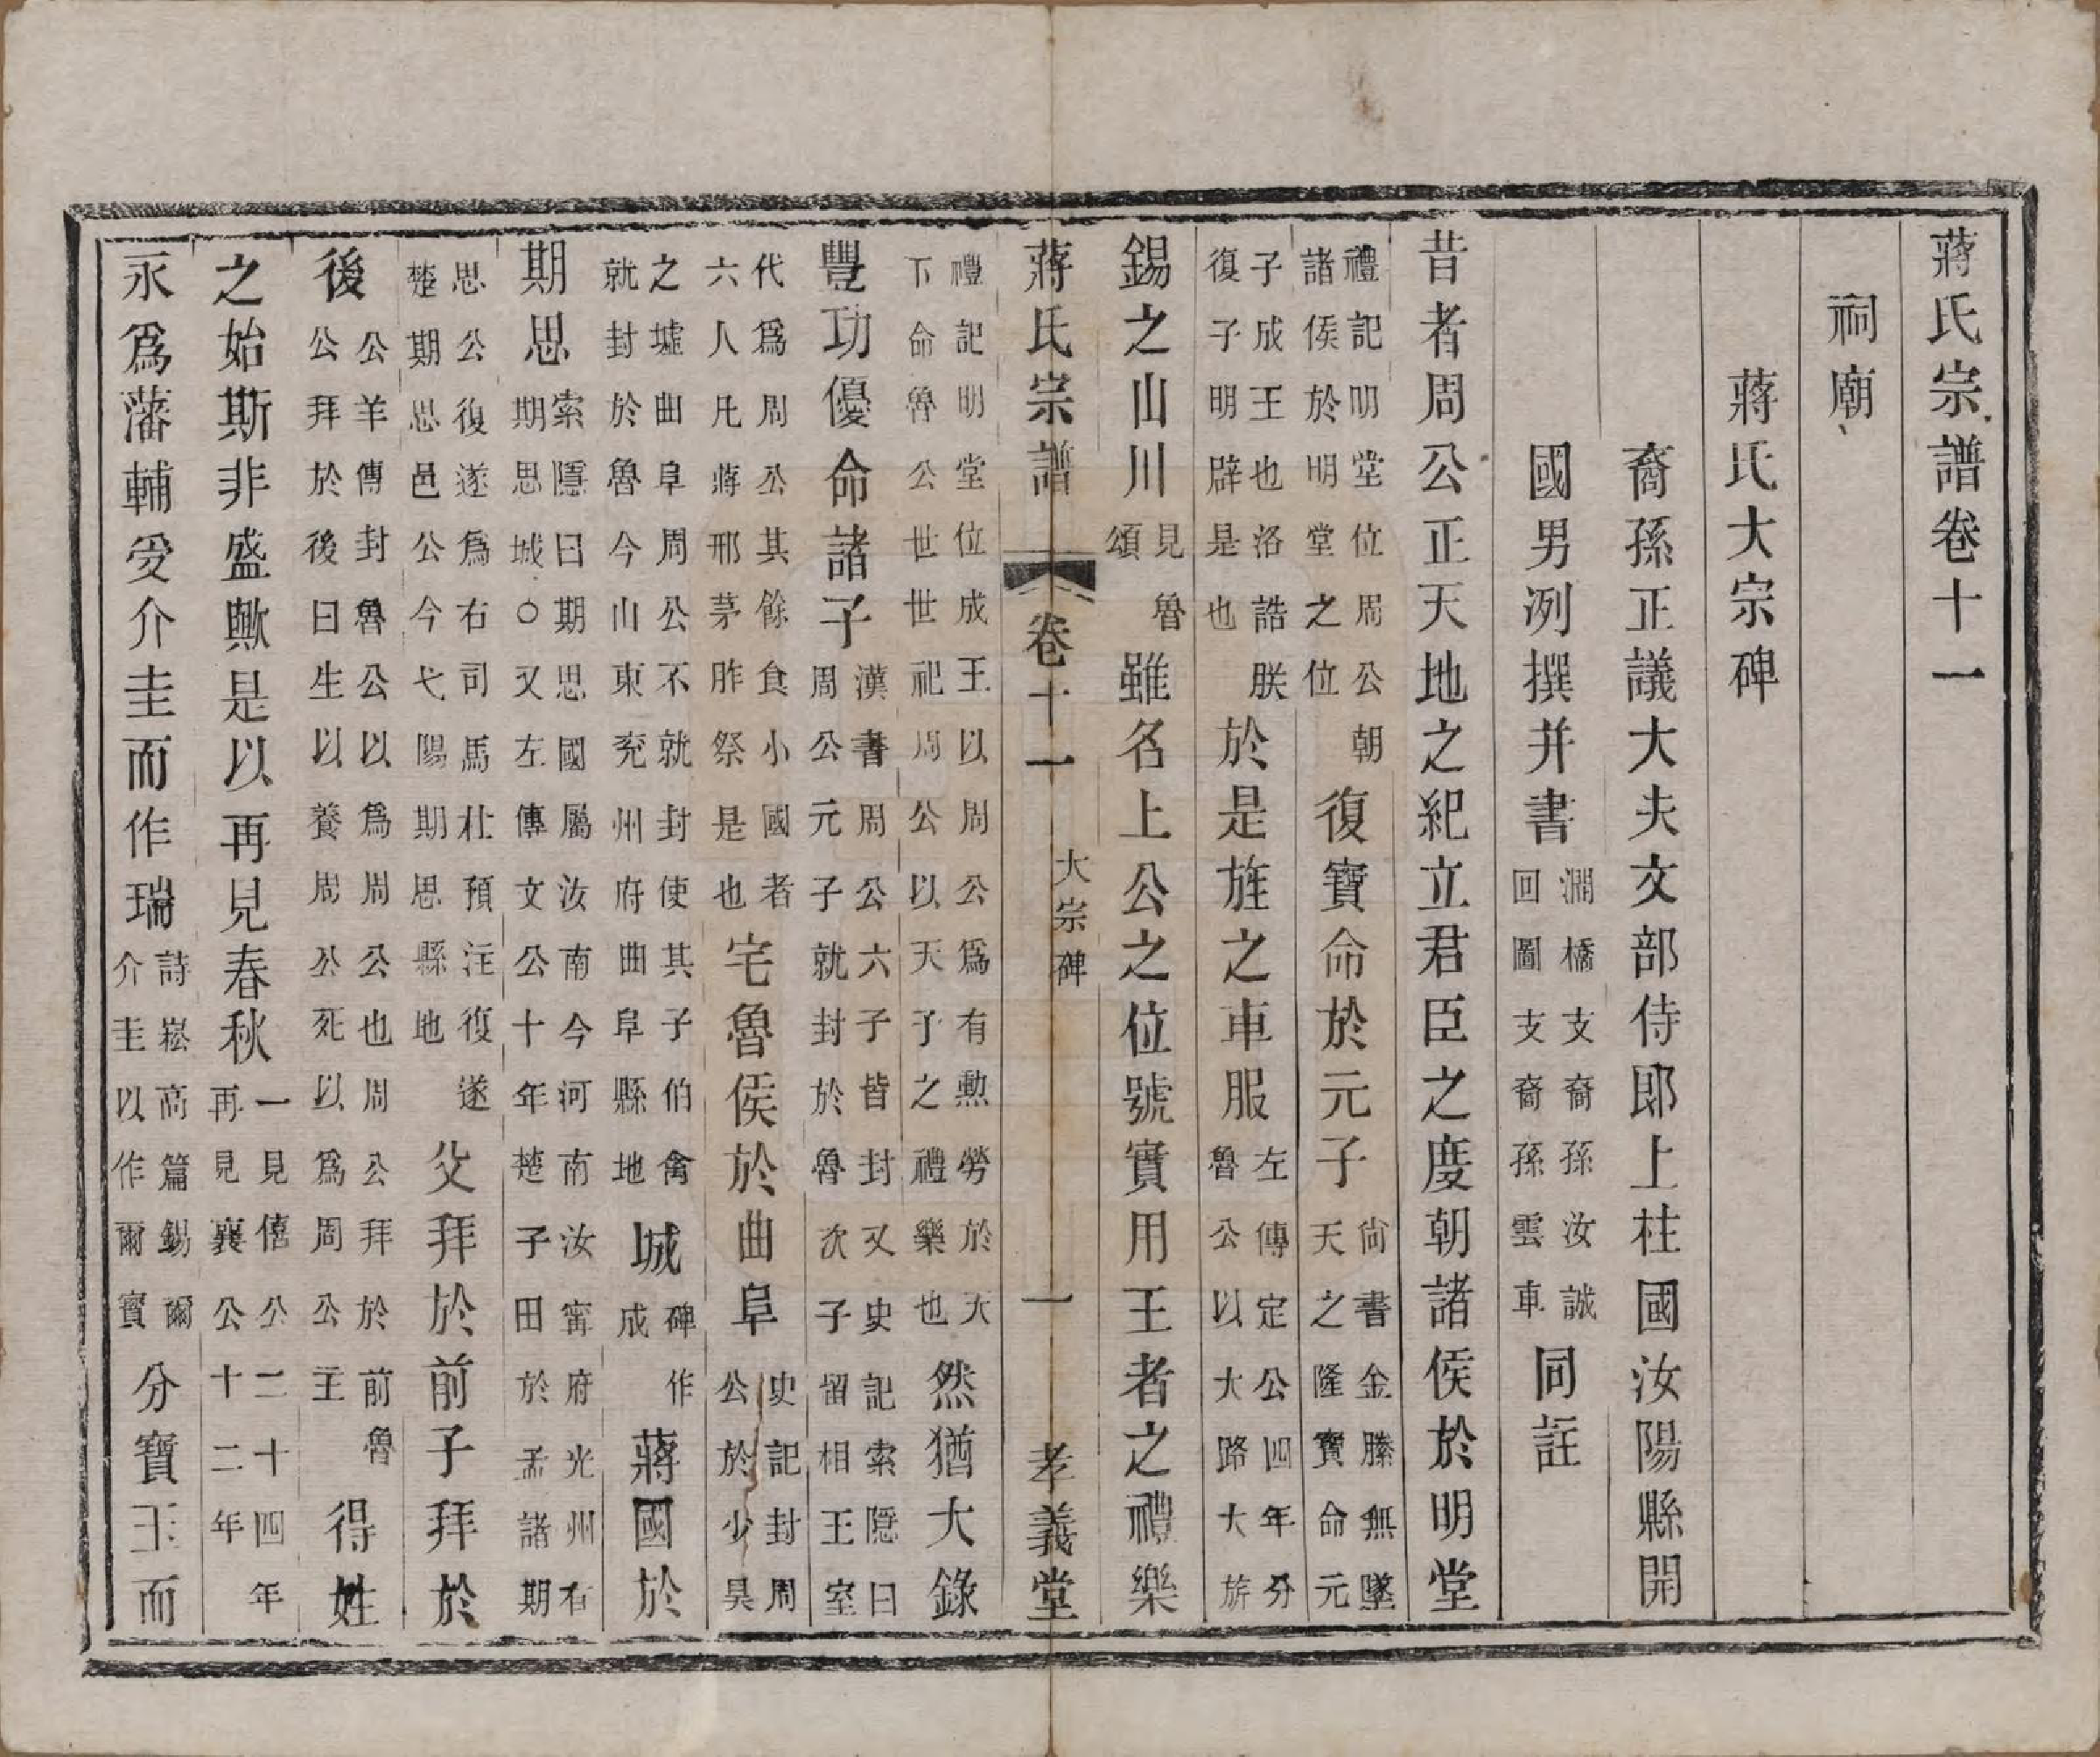 蔣氏宗譜卷十一
祠廟
蔣氏大宗碑
裔孫正議大夫文部侍郎上柱國汝陽縣開
國男冽撰并書 澗橋支裔孫汝誠 回圖支裔孫雲車 同註
昔者周公正天地之紀立君臣之度朝諸侯於明堂
禮記明堂位周公朝 諸侯於明堂之位 復寶命於元子 尙書金縢無墜 天之隆寶命元
子成王也洛誥朕 復子明辟是也 於是旌之車服 左傳定公四年分 魯公以大路大旂
錫之山川 見魯 頌 雖名上公之位號實用王者之禮樂
蔣氏宗譜 卷十一 大宗碑 一 孝義堂
禮記明堂位成王以周公爲有勲勞於天 下命魯公世世祀周公以天子之禮樂也 然猶大錄
豐功優命諸子 漢書周公六子皆封又史記索隱曰 周公元子就封於魯次子留相王室
代爲周公其餘食小國者 六人凡蔣邢茅胙祭是也 宅魯侯於曲阜 史記封周 公於少昊
之墟曲阜周公不就封使其子伯禽 就封於魯今山東兖州府曲阜縣地 城 碑作 成 蔣國於
期思 索隱曰期思國屬汝南今河南汝甯府光州有 期思城○又左傳文公十年楚子田於孟諸期
思公復遂爲右司馬杜預注復遂 楚期思邑公今弋陽期思縣地 父拜於前子拜於
後 公羊傳封魯公以爲周公也周公拜於前魯 公拜於後曰生以養周公死以爲周公主 得姓
之始斯非盛歟是以再見春秋 一見僖公二十四年 再見襄公十二年
永爲藩輔受介圭而作瑞 詩崧高篇錫爾 介圭以作爾寶 分寶玉而